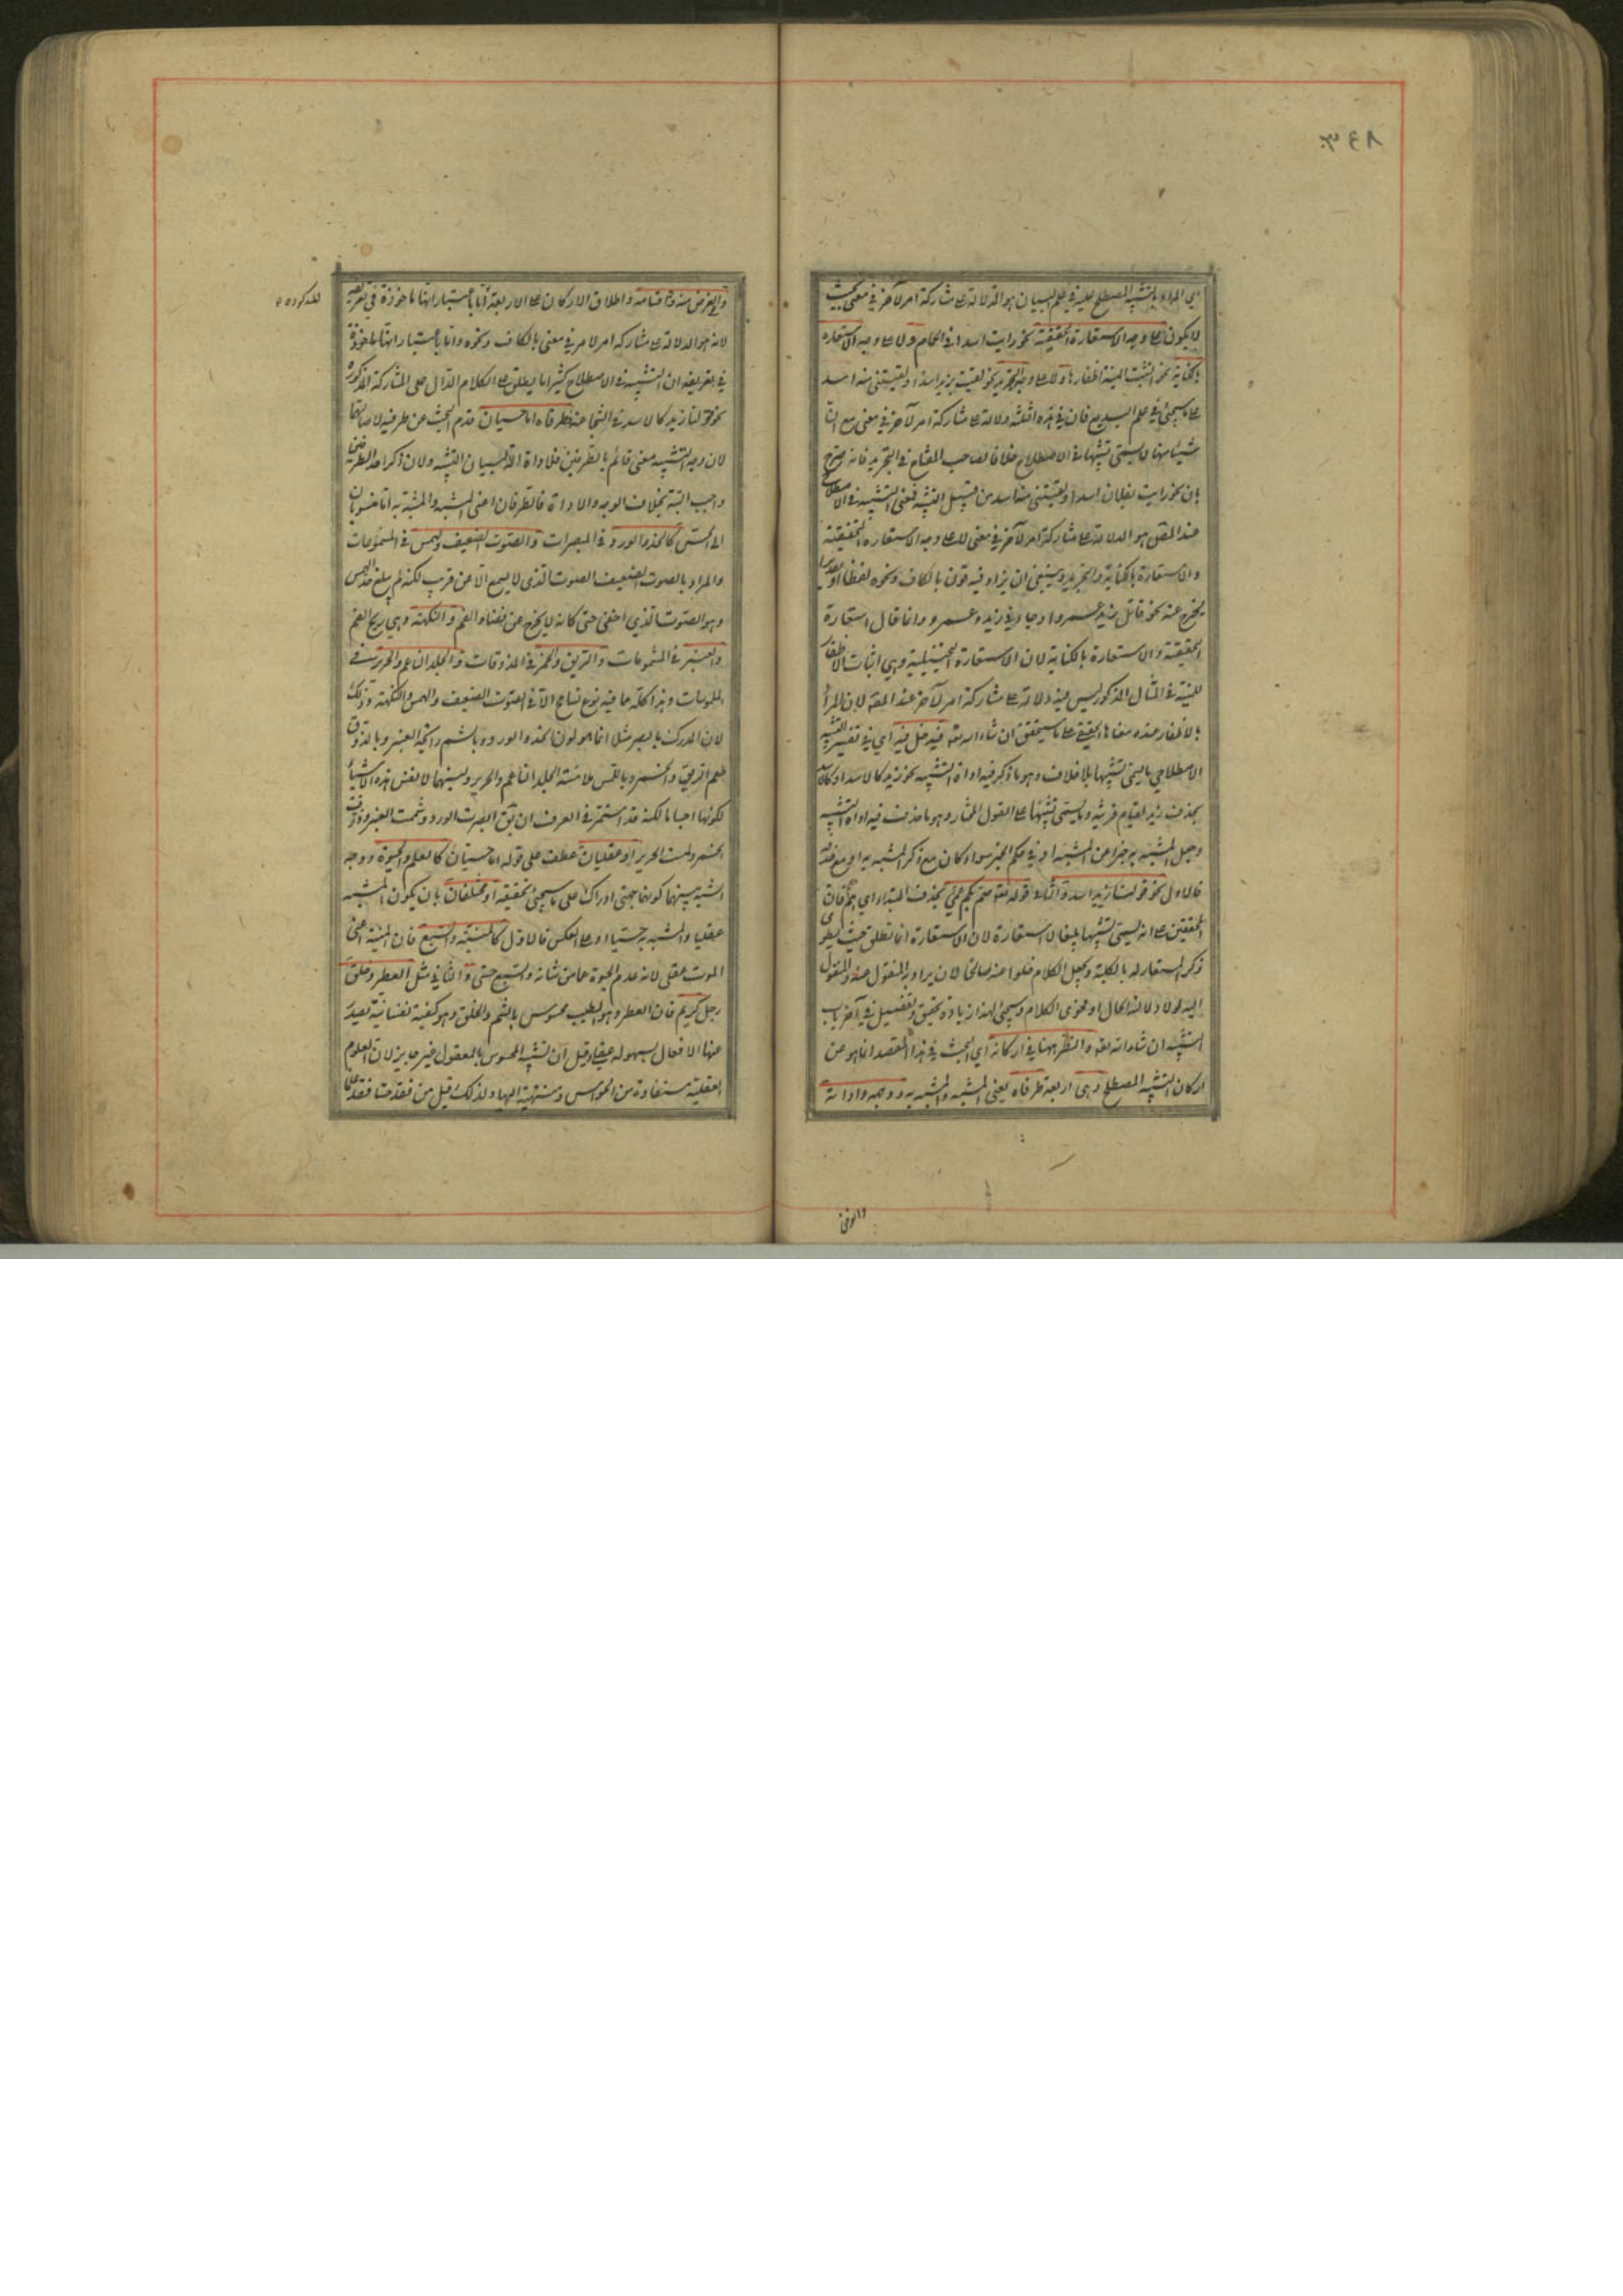 اي المراد بالتشبيه المصطلح عليه في علم البيان هو الدلالة على مشاركة امر لآخر في معنى بحيث
لا يكون على وجه الاستعارة التحقيقية نحو رايت اسدا في الحمام ولا على وجه الاستعارة
بالكناية نحو انشبت المنية اظفارها ولا على وجه التجريد نحو لقيت بزيد اسدا او لقيتني منه اسد
على ما سيجئ في علم البديع فان في هذه الثلثة دلالة على مشاركة امر لآخر في معنى مع ان
شيئا منها لا يسمى تشبيها في الاصطلاح خلافا لصاحب المفتاح في التجريد فانه صرح
بان نحو رايت بفلان اسدا ولقيتني منه اسد من قبيل التشبيه فمعنى التشبيه في الاصطلاح
عند المص هو الدلالة على مشاركة امر لآخر في معنى لا على وجه الاستعارة التحقيقية
والاستعارة بالكناية والتجريد وينبغي ان يزاد فيه قولنا بالكاف ونحوه لفظا او تقديرا
ليخرج عنه نحو قاتل زيد عمروا وجاءني زيد وعمرو وانما قال استعارة
التحقيقية والاستعارة بالكناية لان الاستعارة التخييلية وهي اثبات الاظفار
للمنية في المثال المذكور ليس فيه دلالة على مشاركة امر لآخر عند المص لان المراد
بالاظفار عنده معناها الحقيقي على ما سيتحقق ان شاء الله تعالى فيدخل فيه اي في تفسير التشبيه
الاصطلاحي ما يسمى تشبيها بلا خلاف وهو ما ذكر فيه اداة التشبيه نحو زيد كالاسد او كالاسد
بحذف زيد لقيام قرينة وما يسمى تشبيها على القول المختار وهو ما حذف فيه اداة التشبيه
وجعل المشبه به خبرا عن المشبه او في حكم الخبر سواء كان مع ذكر المشبه به او مع حذفه
فالاول نحو قولنا زيد اسد والثاني قوله تعالى صم بكم عمي بحذف المبتدا اي هم فان
المحققين على انه يسمى تشبيها بليغا لا استعارة لان الاستعارة انما تطلق حيث يطوى
ذكر المستعار له بالكلية ويجعل الكلام خلوا عنه صالحا لان يراد به المنقول عنه والمنقول
اليه لولا دلالة الحال او فحوى الكلام وسيجئ لهذا زيادة تحقيق وتفصيل في آخر باب
التشبيه ان شاء الله تعالى والنظر ههنا في اركانه اي البحث في هذا المقصد انما هو عن
اركان التشبيه المصطلح وهي اربعة طرفاه يعني المشبه والمشبه به ووجهه واداته
والغرض
والغرض منه وفي اقسامه واطلاق الاركان على الاربعة اما باعتبار انها ماخوذة في تعريفه
المذكورة
لانه هو الدلالة على مشاركة امر لامر في معنى بالكاف ونحوه واما باعتبار انها ماخوذة
في تعريفه ان التشبيه في الاصطلاح كثيرا ما يطلق على الكلام الدال على المشاركة المذكورة
نحو قولنا زيد كالاسد في الشجاعة طرفاه اما حسيان قدم البحث عن طرفيه لاصالتهما
لان وجه التشبيه معنى قائم بالطرفين فلاداة آلة لبيان التشبيه ولان ذكر احد الطرفين
واجب البتة بخلاف الوجه والاداة فالطرفان اعني المشبه والمشبه به اما منسوبان
الى الحس كالخد والورد في المبصرات والصوت الضعيف والهمس في المسموعات
والمراد بالصوت الضعيف الصوت الذي لا يسمع الا عن قريب لكنه لم يبلغ حد الهمس
وهو الصوت الذي اخفى حتى كانه لا يخرج عن فضاء الفم والنكهة وهي ريح الفم
والعنبر في المشمومات والريق والخمر في المذوقات والجلد الناعم والحرير في
الملموسات وفي هذا كله ما فيه نوع تسامح الا في الصوت الضعيف والهمس والنكهة وذلك
لان المدرك بالبصر مثلا انما هو لون الخد والورد وبالشم رائحة العنبر وبالذوق
طعم الريق والخمر وباللمس ملامسة الجلد الناعم والحرير ولينهما لا نفس هذه الاشياء
لكونها اجساما لكنه قد استمر في العرف ان يق ابصرت الورد وشممت العنبر وذقت
الخمر ولمست الحرير او عقليان عطف على قوله اما حسيان كالعلم والحيوة ووجه
الشبه بينهما كونهما جهتي ادراك على ما سيجئ تحقيقه او مختلفان بان يكون المشبه
عقليا والمشبه به حسيا او على العكس فالاول كالمنية والسبع فان المنية اعني
الموت عقلي لانه عدم الحيوة عما من شانه والسبع حسي والثاني مثل العطر وخلق
رجل كريم فان العطر وهو الطيب محسوس بالشم والخلق وهو كيفية نفسانية تصدر
عنها الافعال بسهولة عقلي وقيل ان تشبيه المحسوس بالمعقول غير جايز لان العلوم
العقلية مستفادة من الحواس ومنتهية اليها ولذلك قيل من فقد حسا فقد علما